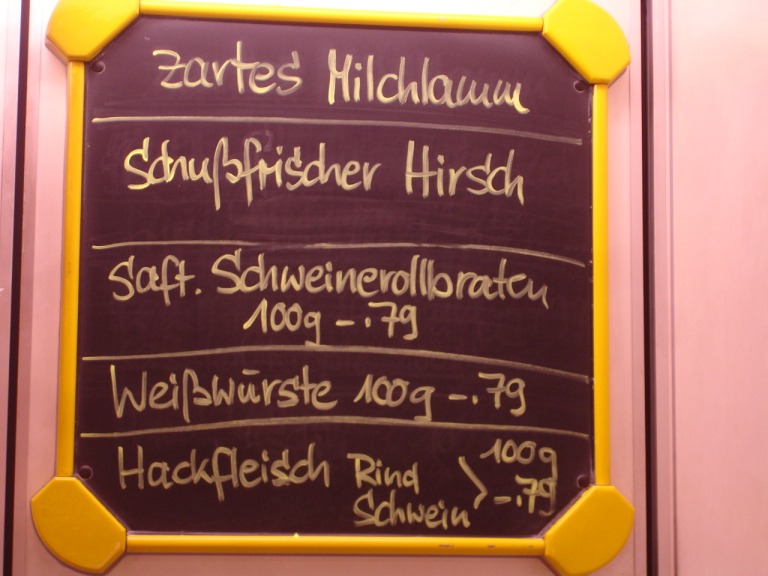 zartes Milchlamm
Schußfrischer Hirsch
Saft. Schweinerollbraten
100g -.79
Weißwürste 100g -.79
Hackfleisch Rind > 100g
Schwein -.79